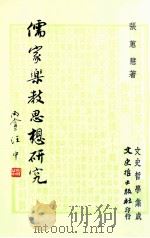 張蕙慧著
儒家樂教思想研究
文史哲學集成
文史哲出版社印行